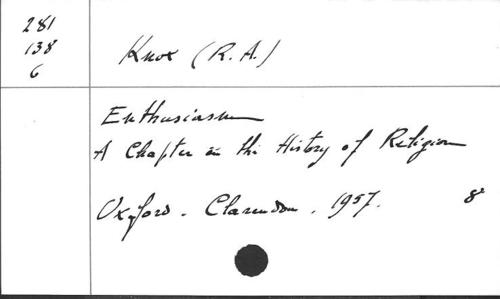 281
138
6
Knox (R.A.)
Enthusiasm
A Chapter in the History of Religion
Oxford. Clarendon. 1957. 8°